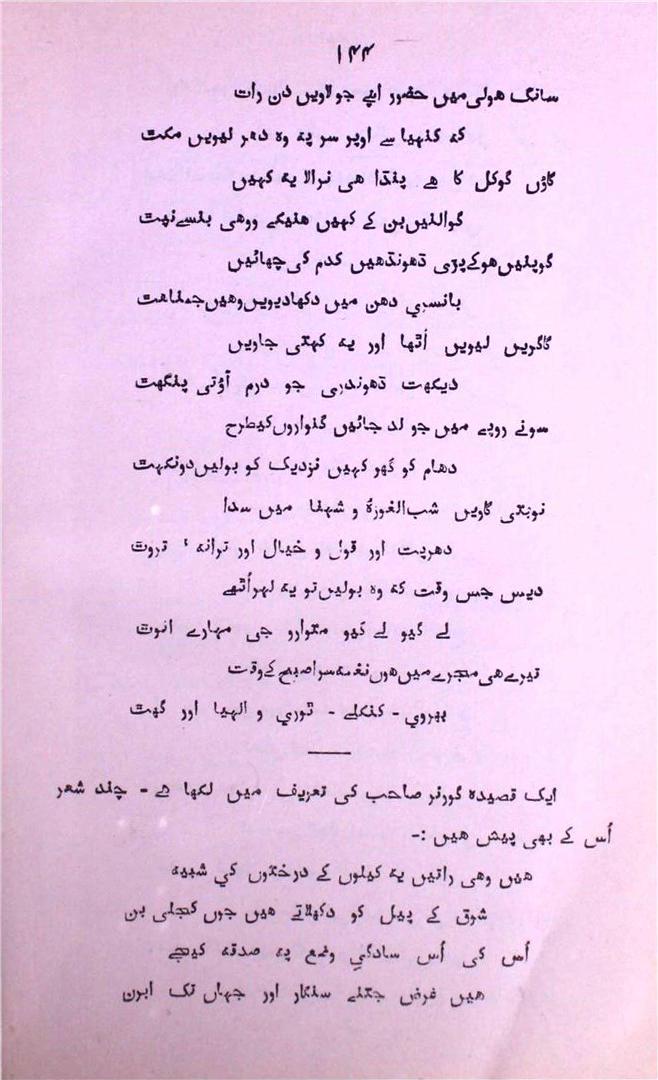 ۱۴۴
سانگ هولی میں حضور اپنے جو لاویں دن رات
که کنهیا سے اوپر سر په وه دهر لیویں مکت
گاؤں گوکل کا هے پنڈا هی نرالا یه کہیں
گوالنیں بن کے کہیں هنیگے ووهی بنسے نپت
گوپنیں هوکے پڑی ڈهونڈهیں کدم کی چهائیں
بانسری دهن میں دکها دیویں وهیں جمناهت
گاگریں لیویں اُٹها اور یه کہتی جاویں
دیکهت ڈهونڈری جو درم آؤتی پنگهت
سونے روپے میں جو لد جائیں گنواروں کیطرح
دهام کو گهو کہیں نزدیک کو بولیں دونکهت
نوبتی گاویں شب الغوزہ و شهفا میں سدا
دهرپت اور قول و خیال اور ترانه ' تروت
دیس جس وقت که وه بولیں تو یه لہر اُٹهے
لے گیو لے گیو متوارو جی مہارے انوت
تیرے هی مجرے میں هوں نغمه سرا صبح کے وقت
بهروی - کنکلے - توری و الہیا اور گهت
ایک قصیده گورنر صاحب کی تعریف میں لکها هے - چند شعر
اُس کے بهی پیش هیں :-
هیں وهی راتیں یه کیلوں کے درختوں کی شبیه
شوق کے پیل کو دکهلاتے هیں جوں کجلی بن
اُس کی اُس سادگیٔ وضع په صدقه کیجے
هیں غرض جتنے سنگار اور جہاں تک ابرن